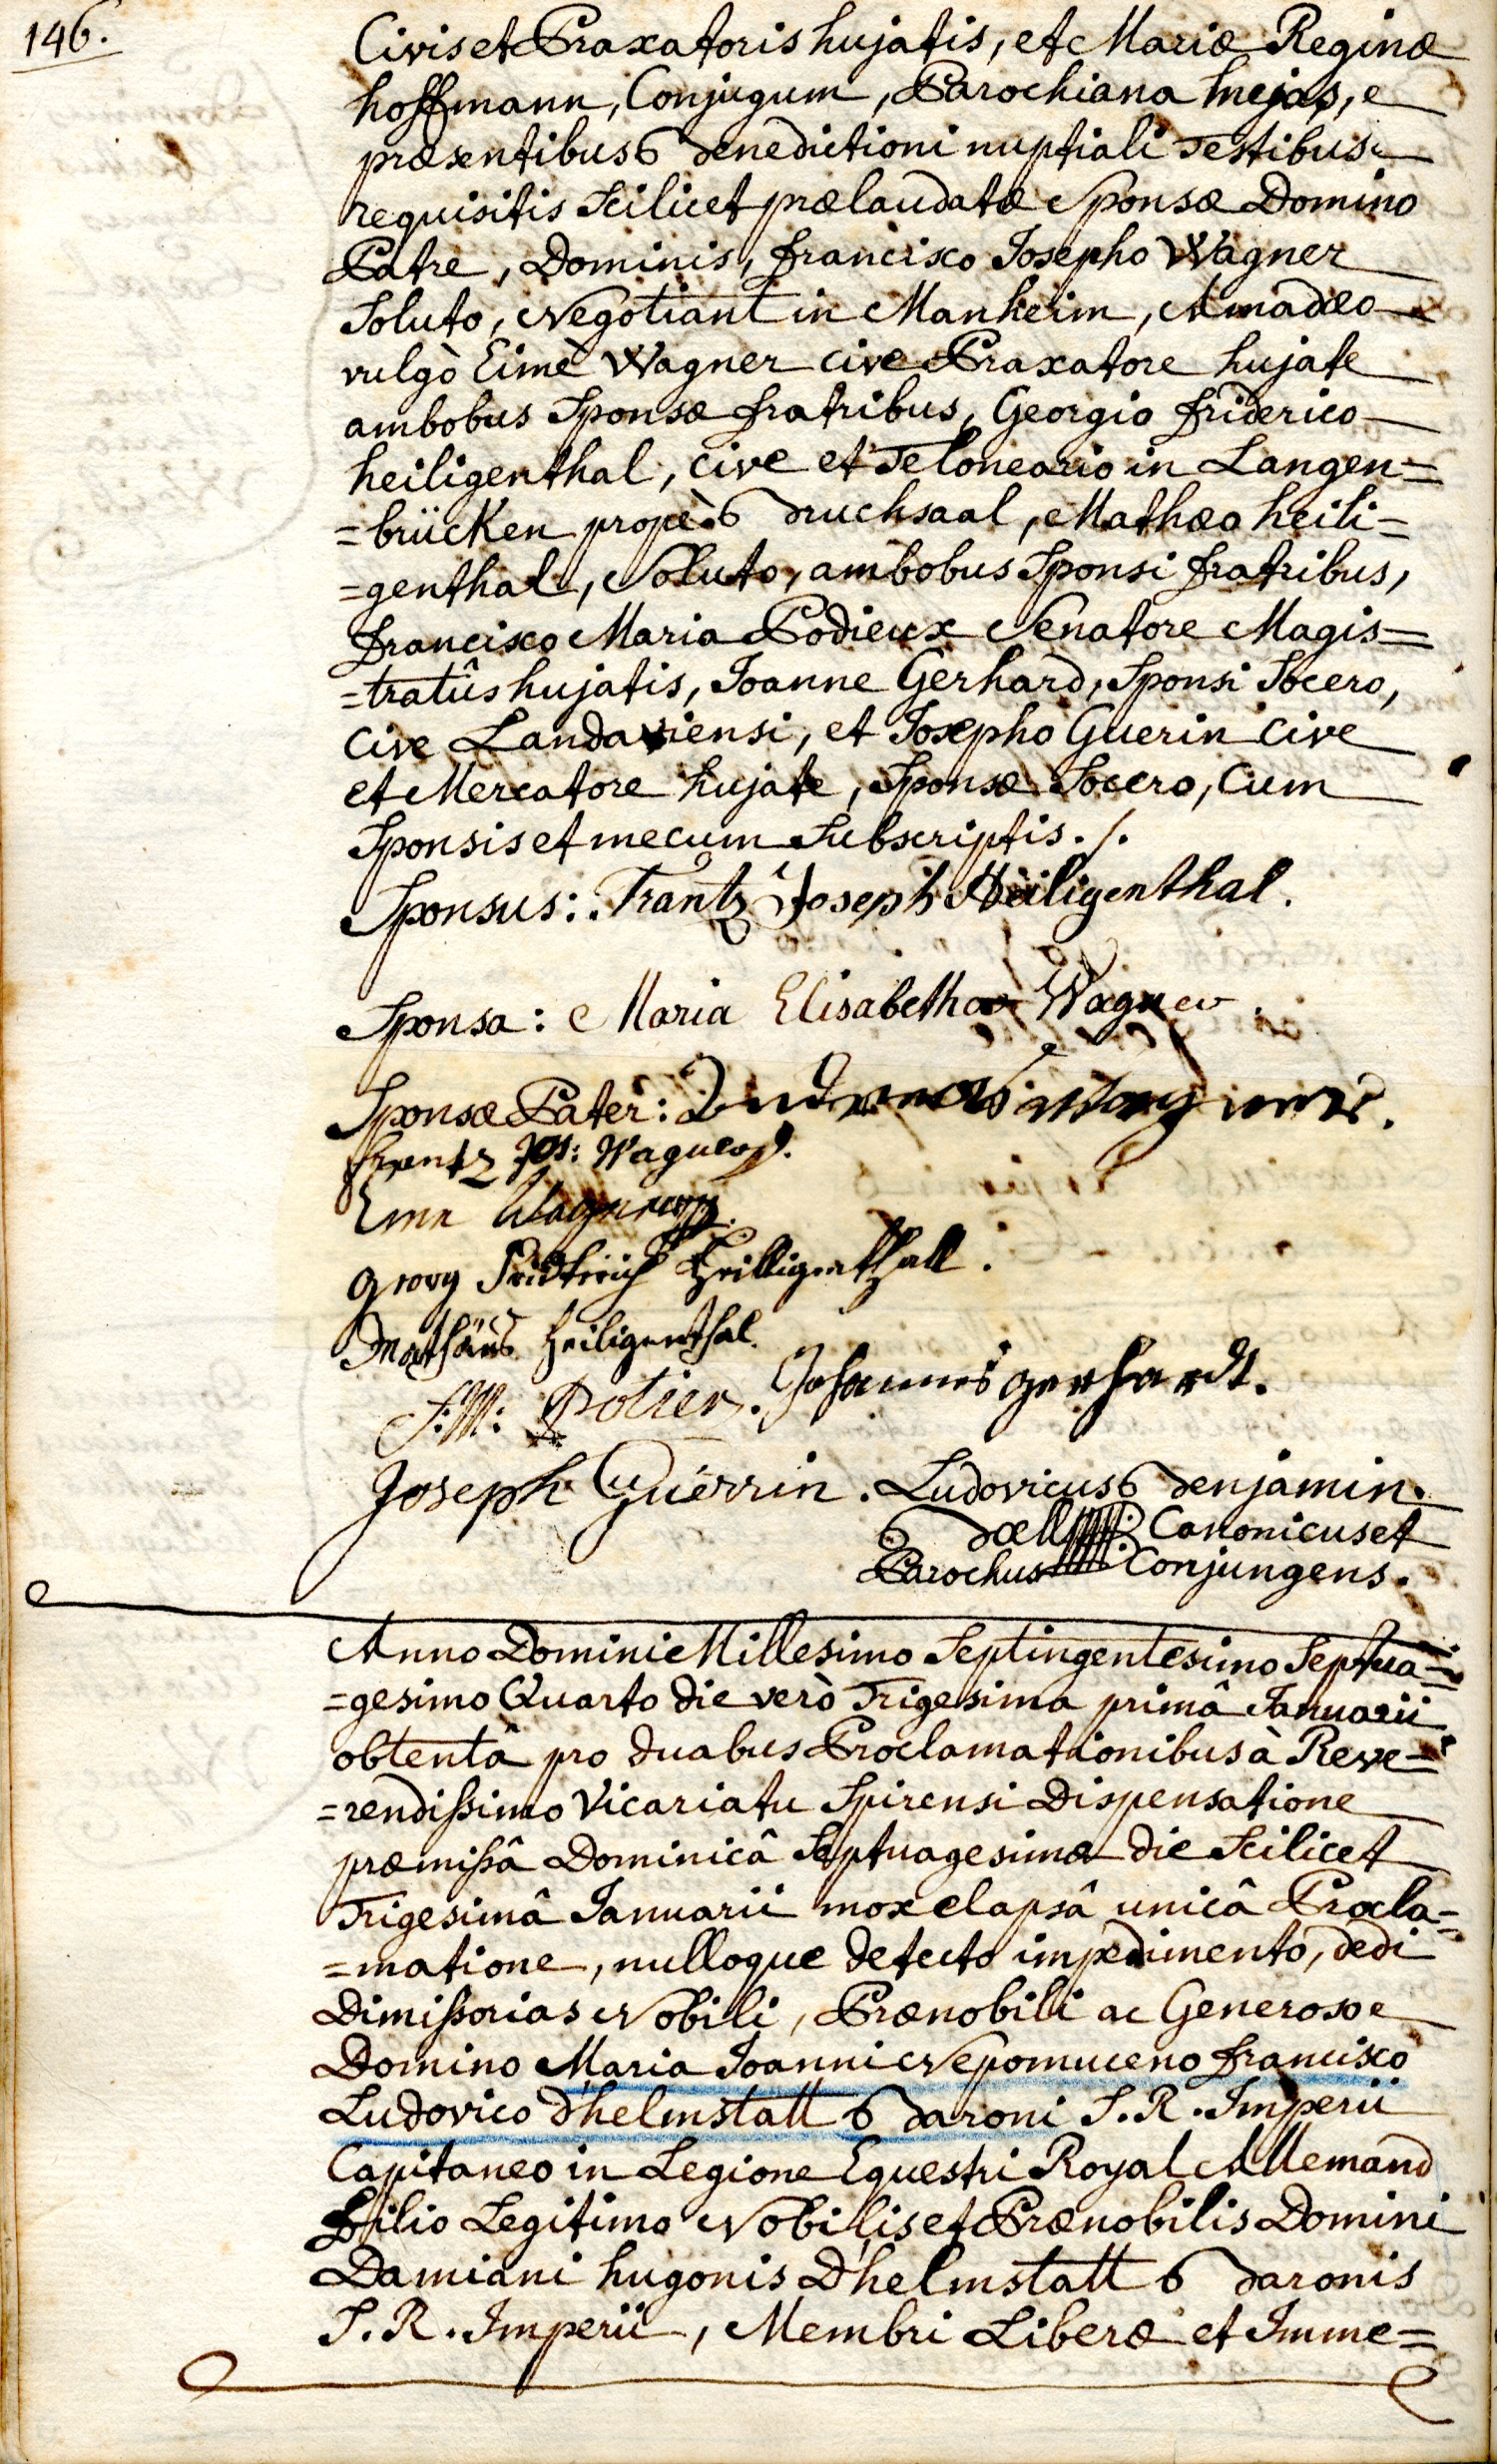 146.
Civis et Praxatoris hujatis, et Mariæ Reginæ
hoffmann, Conjugum, Parochiana hujas,
præsentibus Benedictioni nuptiali Testibus
requisitis Scilicet prælaudatæ Sponsæ Domino
Patre, Dominis, francisco Josepho Wagner
Soluto, Negotiant in Manheim, Amadæo
vulgò Eimè Wagner cive Praxatore hujate
ambobus Sponsæ fratribus, Georgio friderico
heiligenthal, cive et Teloneario in Langen=
=brücken propè Bruchsaal, Mathæo heili=
=genthal, Soluto, ambobus Sponsi fratribus,
francisco Maria Podieux Senatore Magis=
=tratûs hujatis, Joanne Gerhard, Sponsi Socero,
Cive Landaviensi, et Josepho Guerin Cive
et Mercatore hujate, Sponsæ Socero, Cum
Sponsis et mecum Subscriptis ./.
Sponsus: Frantz Joseph Heiligenthal.
Sponsa: Maria Elisabetha Wagner.
Sponsæ Pater: Andreas Wagner.
frantz Jos: Wagner.
Eme Wagner.
Georg Fridterich Heilligenthall.
Mathäus Heiligenthal.
F: M: Potier. Johannes gerhardt.
Joseph Guérrin. Ludovicus Benjamin
Boell Canonicus et
Parochus Conjungens.
Anno Domini Millesimo Septingentesimo Septua=
=gesimo Quarto die verò Trigesima primâ Januarii
obtentâ pro duabus Proclamationibus à Reve=
=rendissimo Vicariatu Spirensi Dispensatione
præmissâ Dominicâ Septuagesimæ die Scilicet
Trigesimâ Januarii mox elapsâ unicâ Procla=
=matione, nulloque detecto impedimento, dedi
Dimissorias Nobili, Prænobili ac Generoso
Domino Maria Joanni Nepomuceno francisco
Ludovico d'helmstatt Baroni S. R. Imperii
Capitaneo in Legione Equestri Royal Allemand
filio Legitimo Nobilis et Prænobilis Domini
Damiani hugonis D'helmstatt Baronis
S. R. Imperii, Membri Liberæ et Imme=